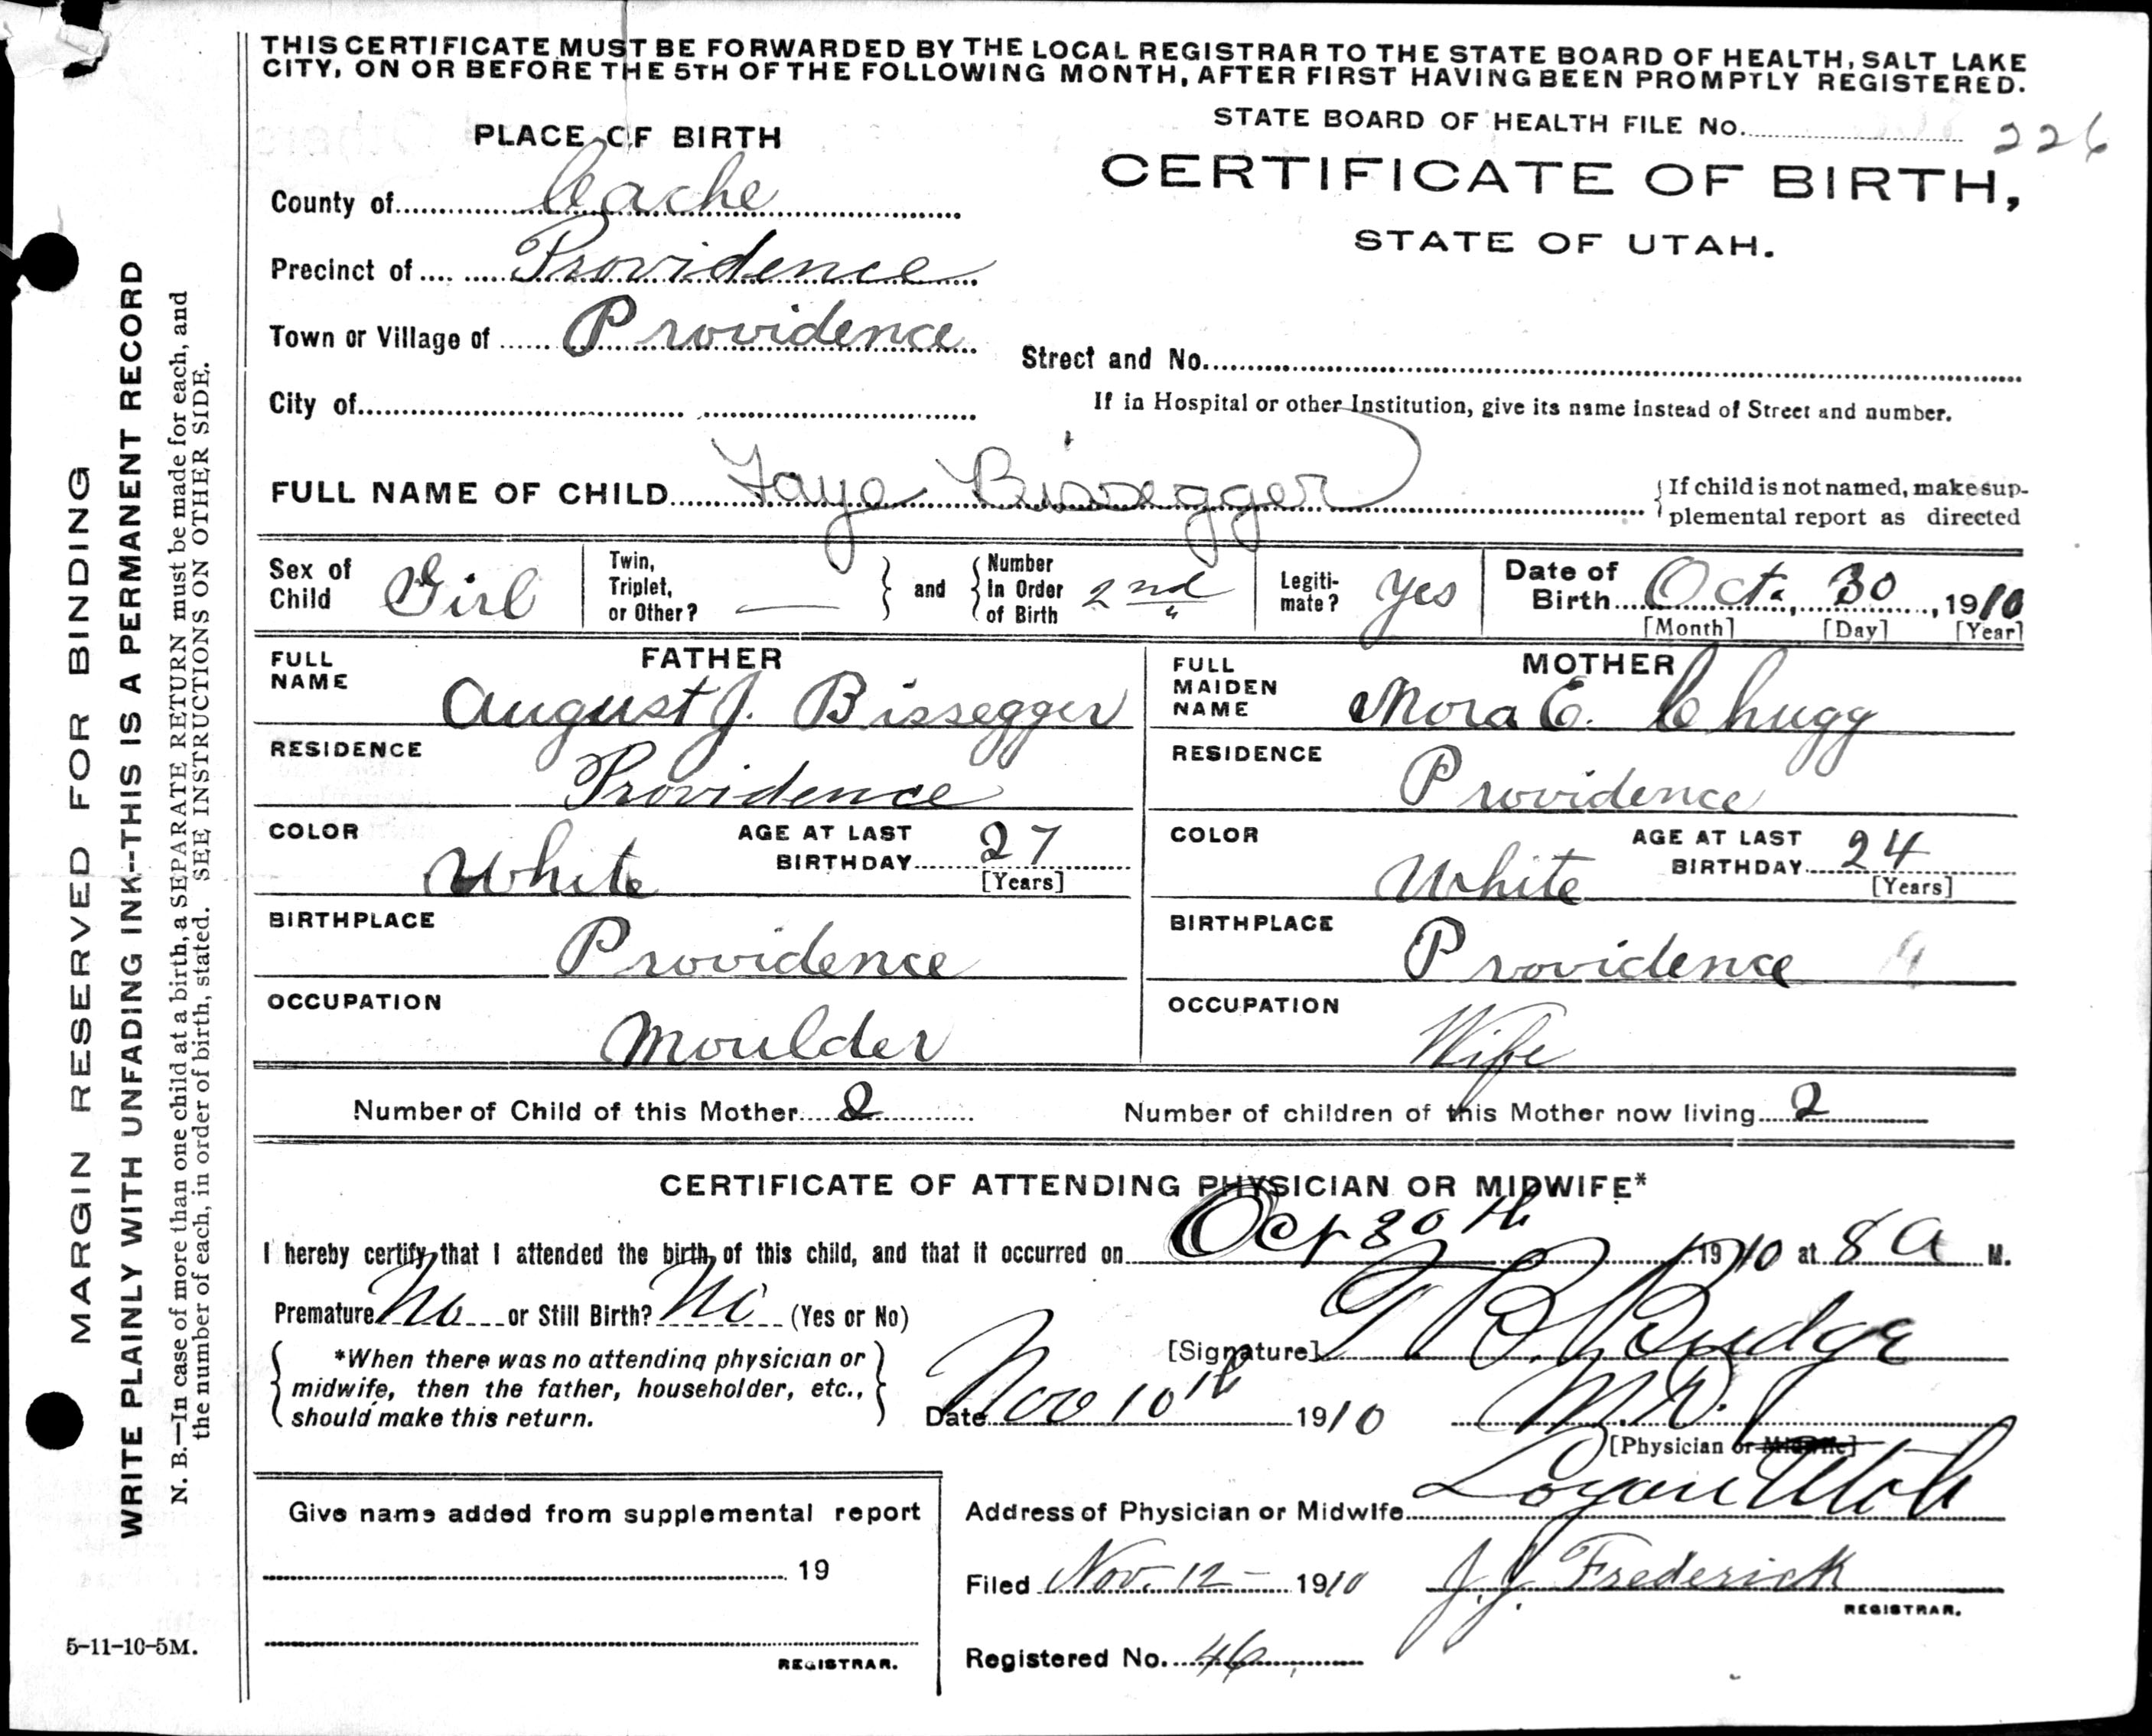 THIS CERTIFICATE MUST BE FORWARDED BY THE LOCAL REGISTRAR TO THE STATE BOARD OF HEALTH, SALT LAKE
CITY, ON OR BEFORE THE 5TH OF THE FOLLOWING MONTH, AFTER FIRST HAVING BEEN PROMPTLY REGISTERED.
STATE BOARD OF HEALTH FILE No. 226
CERTIFICATE OF BIRTH,
STATE OF UTAH.
PLACE OF BIRTH
County of Cache
Precinct of Providence
Town or Village of Providence
Street and No.
City of
If in Hospital or other Institution, give its name instead of Street and number.
FULL NAME OF CHILD Faye Bissegger
If child is not named, make sup-
plemental report as directed
Sex of Child Girl
Twin, Triplet, or Other? —
and
Number In Order of Birth 2nd
Legiti-mate? Yes
Date of Birth Oct. 30, 1910
[Month] [Day] [Year]
FATHER
FULL NAME August J. Bissegger
RESIDENCE Providence
COLOR White
AGE AT LAST BIRTHDAY 27
[Years]
BIRTHPLACE Providence
OCCUPATION Moulder
MOTHER
FULL MAIDEN NAME Nora E. Chugg
RESIDENCE Providence
COLOR White
AGE AT LAST BIRTHDAY 24
[Years]
BIRTHPLACE Providence
OCCUPATION Wife
Number of Child of this Mother 2
Number of children of this Mother now living 2
CERTIFICATE OF ATTENDING PHYSICIAN OR MIDWIFE*
I hereby certify that I attended the birth of this child, and that it occurred on Oct 30th 1910 at 8 A M.
Premature No or Still Birth? No (Yes or No)
[Signature] T B Budge
*When there was no attending physician or
midwife, then the father, householder, etc.,
should make this return.
Date Nov 10th 1910
M.D.
[Physician or Midwife]
Address of Physician or Midwife Logan Utah
Give name added from supplemental report
19
REGISTRAR.
Filed Nov. 12 - 1910
J. J. Frederick
REGISTRAR.
Registered No. 46
MARGIN RESERVED FOR BINDING
WRITE PLAINLY WITH UNFADING INK--THIS IS A PERMANENT RECORD
N. B.—In case of more than one child at a birth, a SEPARATE RETURN must be made for each, and
the number of each, in order of birth, stated. SEE INSTRUCTIONS ON OTHER SIDE.
5-11-10-5M.